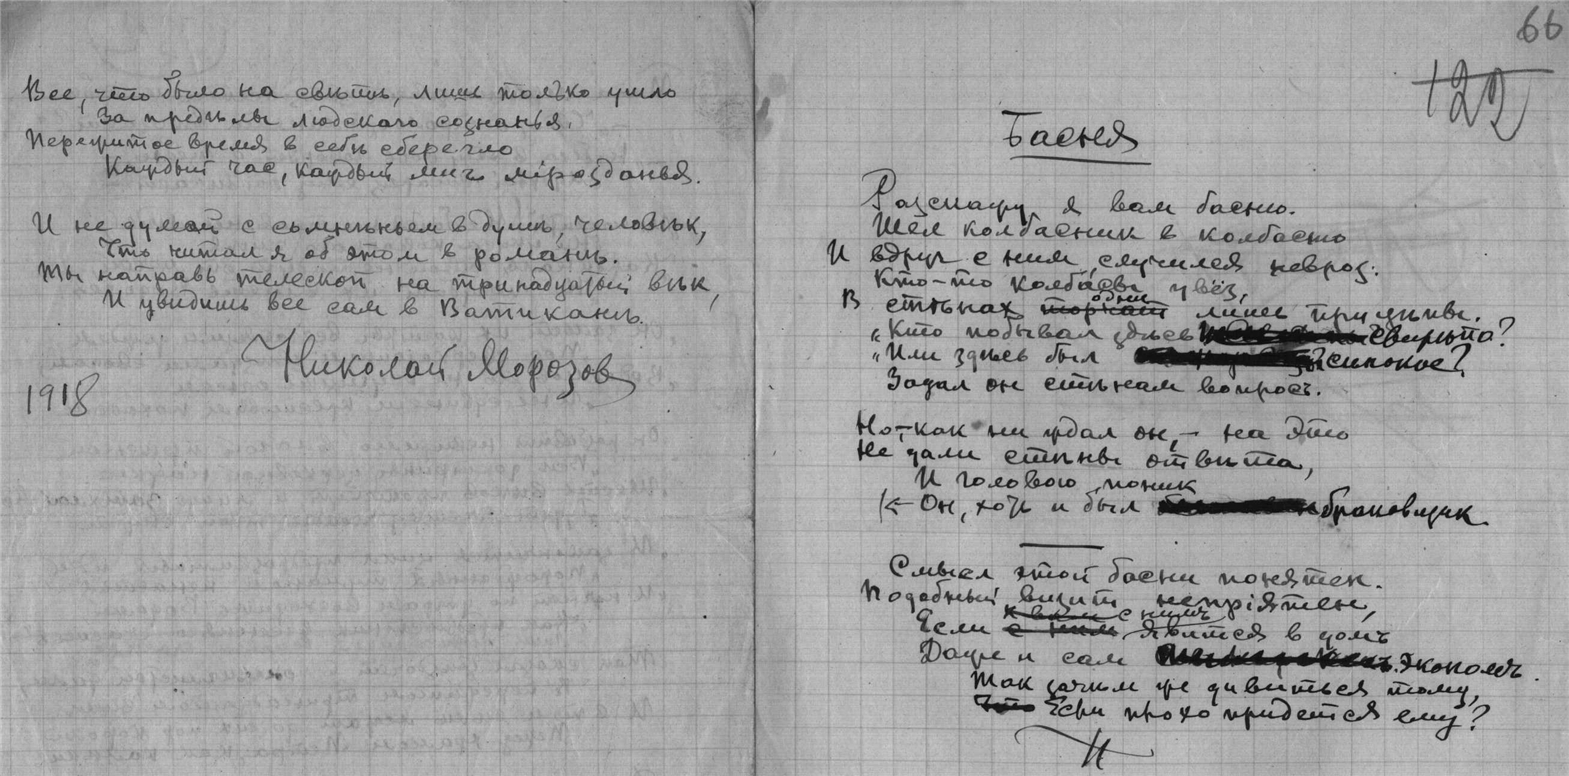 Все, что было на свѣтѣ, лишь только ушло
За предѣлы людского сознанья.
Пережитое время в себѣ сберегло
Каждый час, каждый миг мірозданья.
И не думай с сомнѣньем в душѣ, человѣк,
Что читал я об этом в романѣ.
Ты направь телескоп на тринадцатый вѣк,
И увидишь все сам в Ватиканѣ.
Николай Морозов
1918
66
122
Басня
Разскажу я вам басню.
Шёл колбасник в колбасню
И вдруг с ним случился невроз:
Кто-то колбасы увёз,
В стѣнах торчат одни лишь прицѣпы.
„Кто побывал здѣсь свирѣпо?
„Или здѣсь был
Задал он стѣнам вопросъ.
Но, – как ни ждал он, – на это
Не дали стѣны отвѣта,
И головою поник
Он, хоть и был браковщик
Смысл этой басни понятен.
Подобный визит непріятен,
Если с ним к вам с нимъ явится в домъ
Даже и сам экономъ.
Так зачѣм же дивиться тому,
Что Если плохо придется ему?
Н